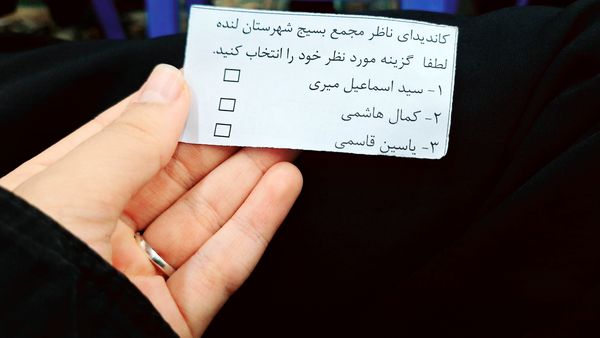 کاندیدای ناظر مجمع بسیج شهرستان لنده
لطفا گزینه مورد نظر خود را انتخاب کنید.
۱- سید اسماعیل میری
۲- کمال هاشمی
۳- یاسین قاسمی